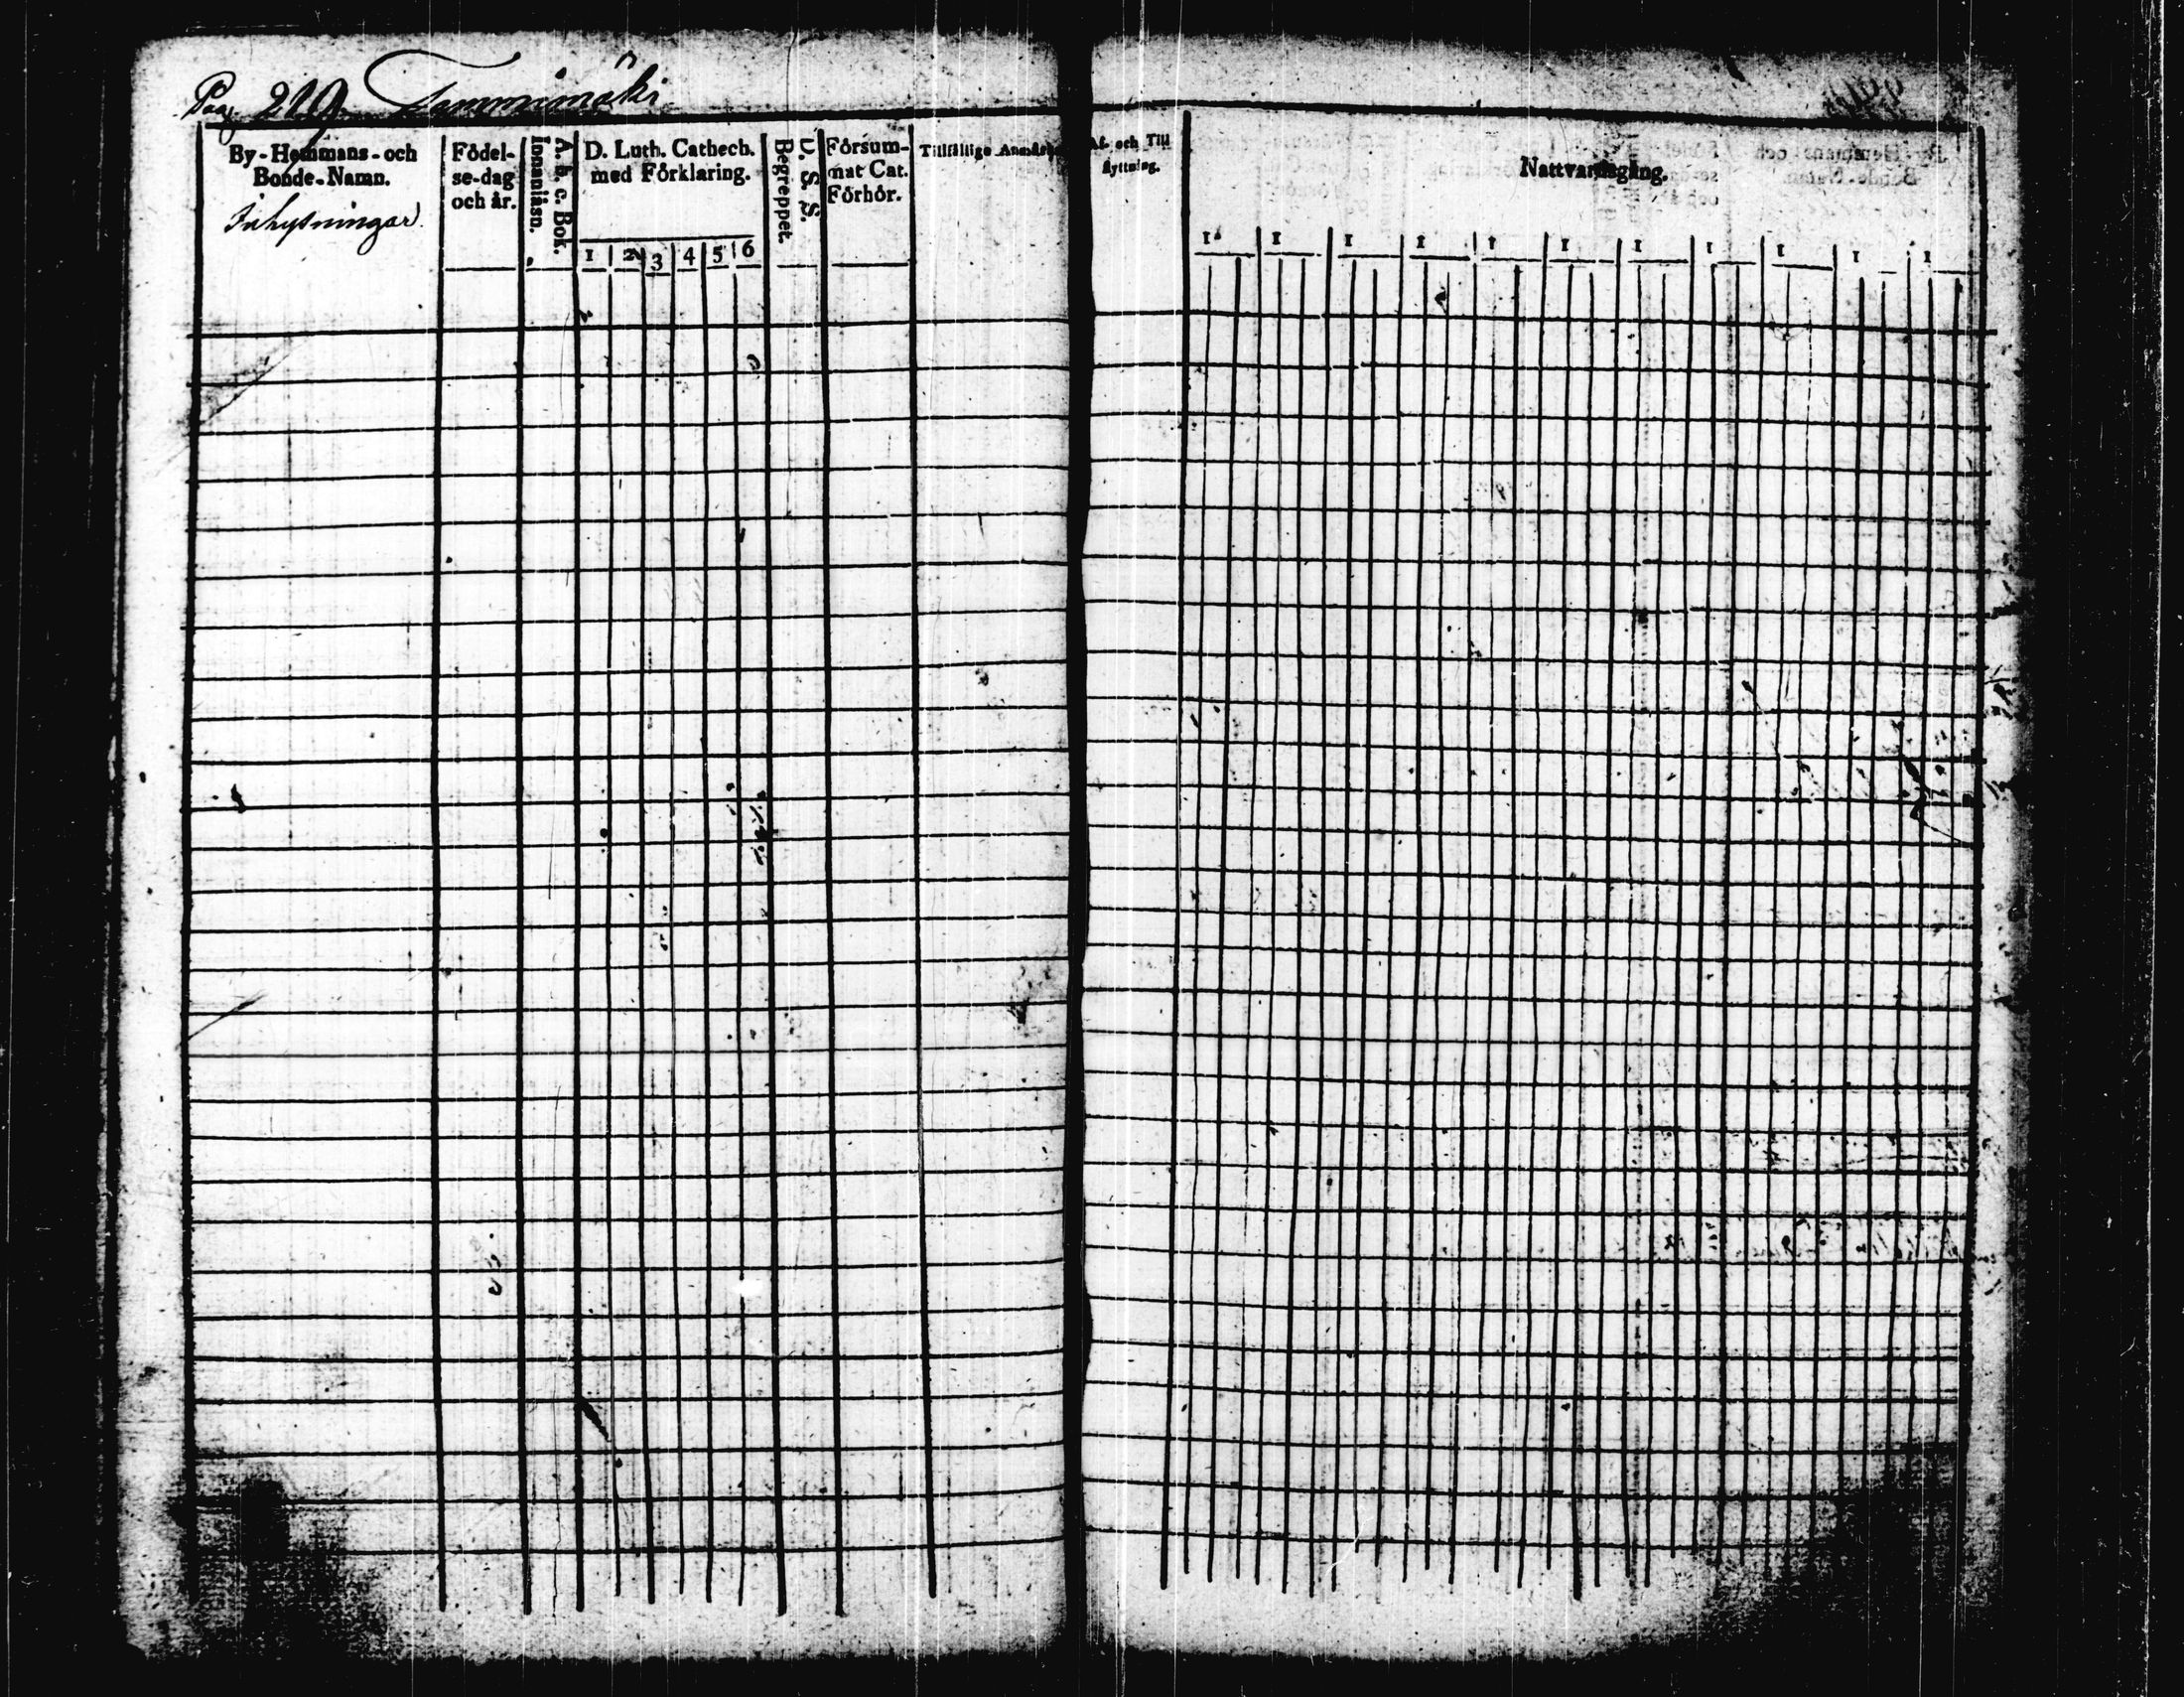 Pag. 219. Tammimäki
By-Hemmans-och
Bonde-Namn.
Inhysningar.
Födel-
se-dag
och år.
A. b. c. Bok.
Innanläsn.
D. Luth. Cathech.
med Förklaring.
1 2 3 4 5 6
D. S. S.
Begreppet.
Försum-
mat Cat.
Förhör.
Tillfällige Anmärkn
Af- och Till
flyttning.
Nattvardsgång.
1 1 1 1 1 1 1 1 1 1 1